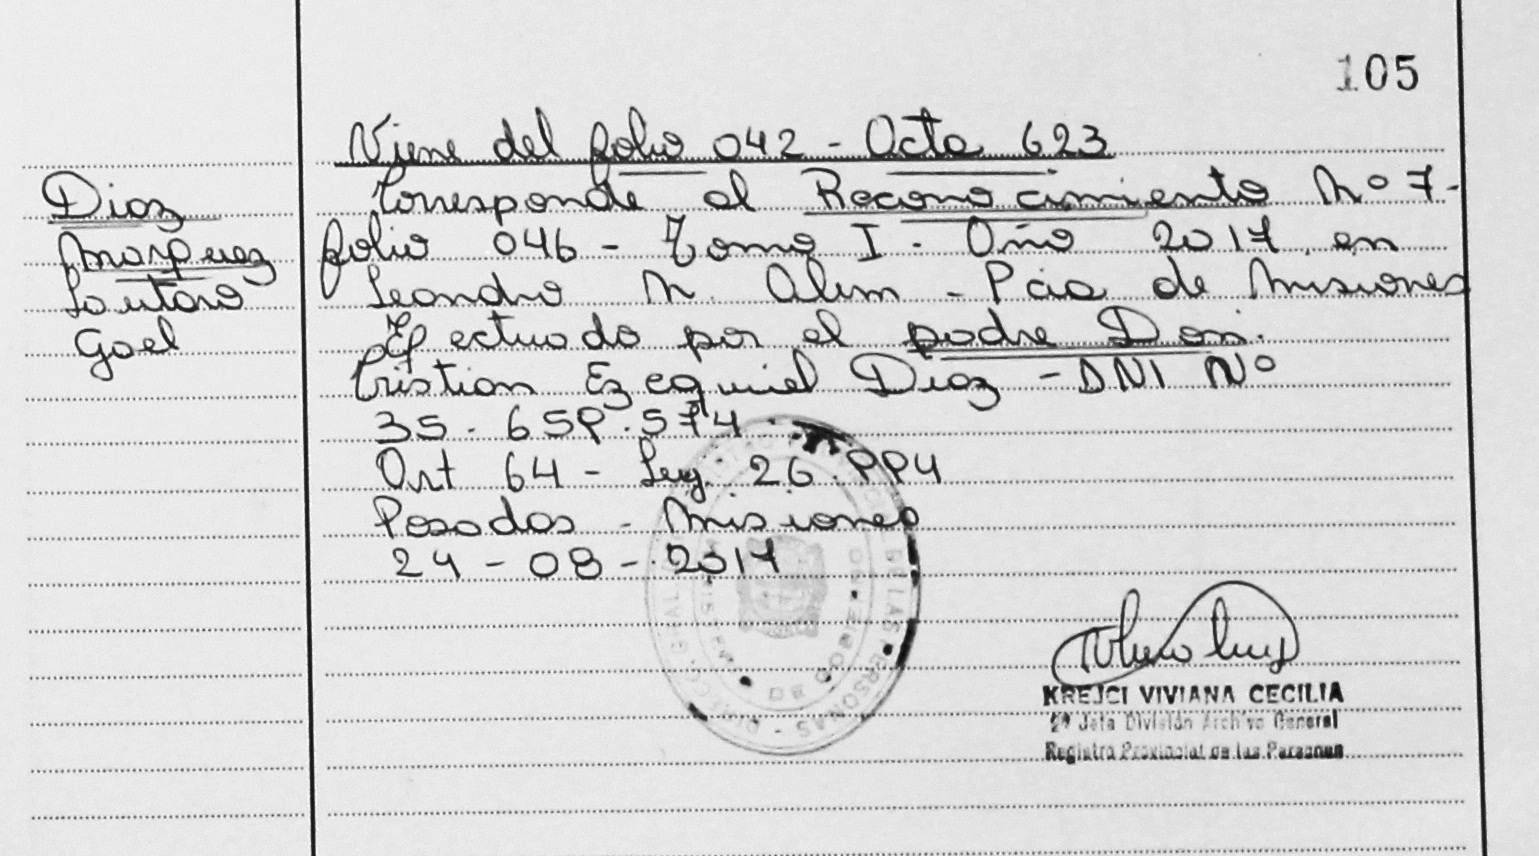 105
Viene del folio 042 - Acta 623
Diaz
Marquez
Lautaro
Gael
Corresponde al Reconocimiento Nº 7-
folio 046 - Tomo I - Año 2017 en
Leandro N. Alem - Pcia de Misiones
Efectuado por el padre Don.
Cristian Ezequiel Diaz - DNI Nº
35.659.574
Art 64 - Ley. 26.994
Posadas - Misiones
24-08-2017
KREJCI VIVIANA CECILIA
2ª Jefa División Archivo General
Registro Provincial de las Personas
DE LAS PERSONAS